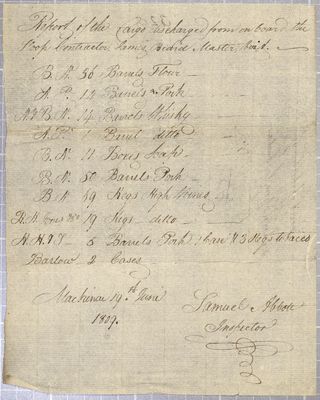 Report of the Cargo discharged from on board the
Sloop Contractor James Master
B. N. 56 Barrels Flour
A. P. 12 Barrels Pork
B. N. 14 Barrels Whisky
1 Barrel ditto
B. N. 11 Boxes Soap
B. N. 50 Barrels Pork
B. N. 59 Kegs High Wines
19 Kegs ditto
5 Barrels Pork 3 Kegs Tobacco
Barlow 2 Cases
Mackinac 19th June
1809.
Samuel Abbott
Inspector